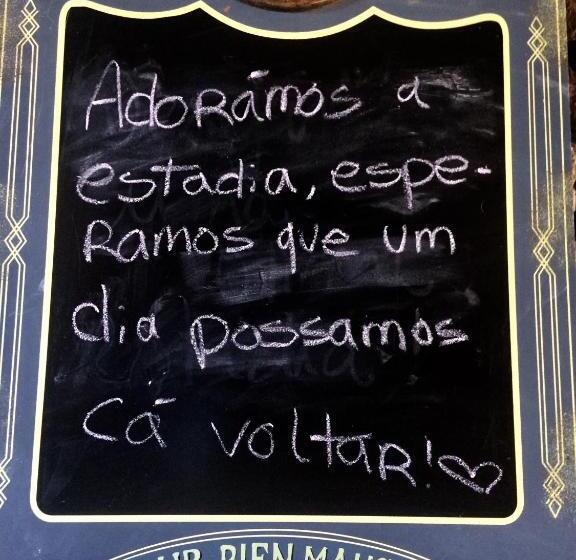 Adorámos a
estadia, espe-
ramos que um
dia possamos
cá voltar!♡
BIEN